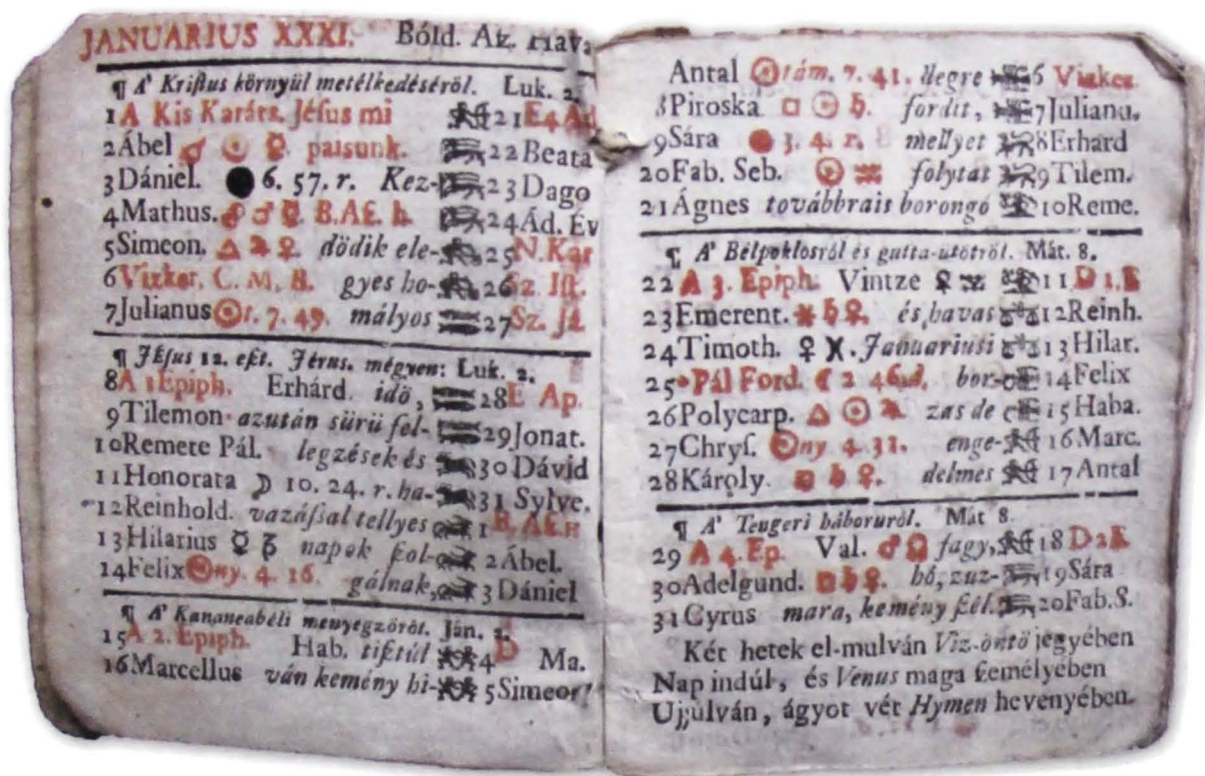 JANUARIUS XXXI. Bóld. Az.
¶ A' Kriſtus környül metélkedéséről. Luk. 2.
1 A Kis Karáts. Jéſus mi 21 E 4 Ad
2 Ábel ♂ ☉ ☿. patsunk. 22 Beata
3 Dániel. ● 6. 57. r. Kez- 23 Dago
4 Mathus. 24 Ád. Év
5 Simeon. △ ♃ ♀ dödik ele- 25 N. Kar
6 Vizker. C. M. B. gyes ho- 26 Sz. Iſt.
7 Julianus ☉ t. 7. 49. mályos 27 Sz. Já
¶ Jéſus 12. eſt. Jérus. mégyen: Luk. 2.
8 A 1 Epiph. Erhárd. idö, 28 E Ap.
9 Tilemon azután sürü fel- 29 Jonat.
10 Remete Pál. legzések és 30 Dávid
11 Honorata ☽ 10. 24. r. ha- 31 Sylve.
12 Reinhold. vazáſsal tellyes 1
13 Hilarius ☿ napok ſol- 2 Ábel.
14 Felix ☉ ny. 4. 16. gálnak, 3 Dániel
¶ A' Kananeabéli menyegzöröl. Ján. 2.
15 A 2. Epiph. Hab. tiſtúl 4 D Ma.
16 Marcellus ván kemény hi- 5 Simeon
Antal ☉ tám. 7. 41. degre 6 Vizker
8 Piroska □ ☉ ♄. fordit, 7 Julianu.
9 Sára ● 3. 4. r. mellyet 8 Erhard
20 Fab. Seb. ☉ ♒ folytat 9 Tilem.
21 Ágnes továbbrais borongó 10 Reme.
¶ A' Bélpoklosról és gutta-ütötröl. Mát. 8.
22 A 3. Epiph. Vintze ♀ 11 D 1. E
23 Emerent. ✱ ♄ ♀. és havas 12 Reinh.
24 Timoth. ♀ ♓. Januariusi 13 Hilar.
25 Pál Ford. ☾ 2 46 d. bor- 14 Felix
26 Polycarp. △ ☉ ♃ zas de 15 Haba.
27 Chryſ. ☉ ny 4. 31. enge- 16 Marc.
28 Károly. □ ♄ ♀. delmes 17 Antal
¶ A' Tengeri háboruról. Mát 8.
29 A 4. Ep. Val. fagy, 18 D 2 E
30 Adelgund. □ ♄ ♀. hó, zuz- 19 Sára
31 Cyrus mara, kemény ſél. 20 Fab. S.
Két hetek el-mulván Viz-öntö jegyében
Nap indúl, és Venus maga ſemélyében
Ujjúlván, ágyot vét Hymen hevenyében.